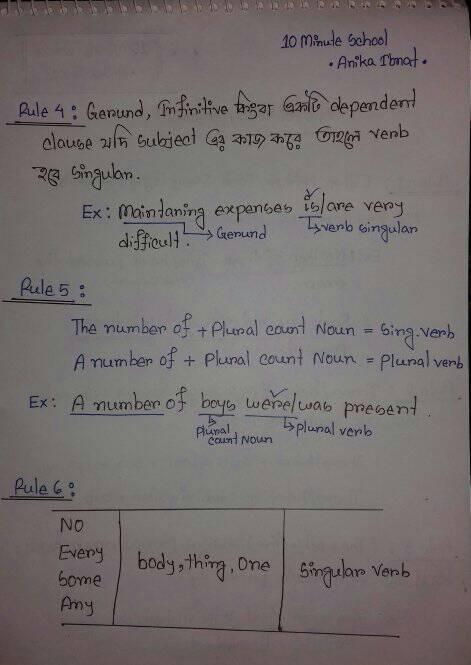 10 Minute School
• Anika Ibnat •
Rule 4 : Gerund, Infinitive কিংবা একটি dependent
clause যদি subject এর কাজ করে তাহলে verb
হবে singular.
Ex : Maintaning expenses is/are very
difficult. → Gerund → verb singular
Rule 5 :
The number of + Plural count Noun = Sing. verb
A number of + Plural count Noun = plural verb
Ex : A number of boys were/was present.
Plural count Noun → plural verb
Rule 6 :
NO
Every
Some body, thing, One Singular verb
Any